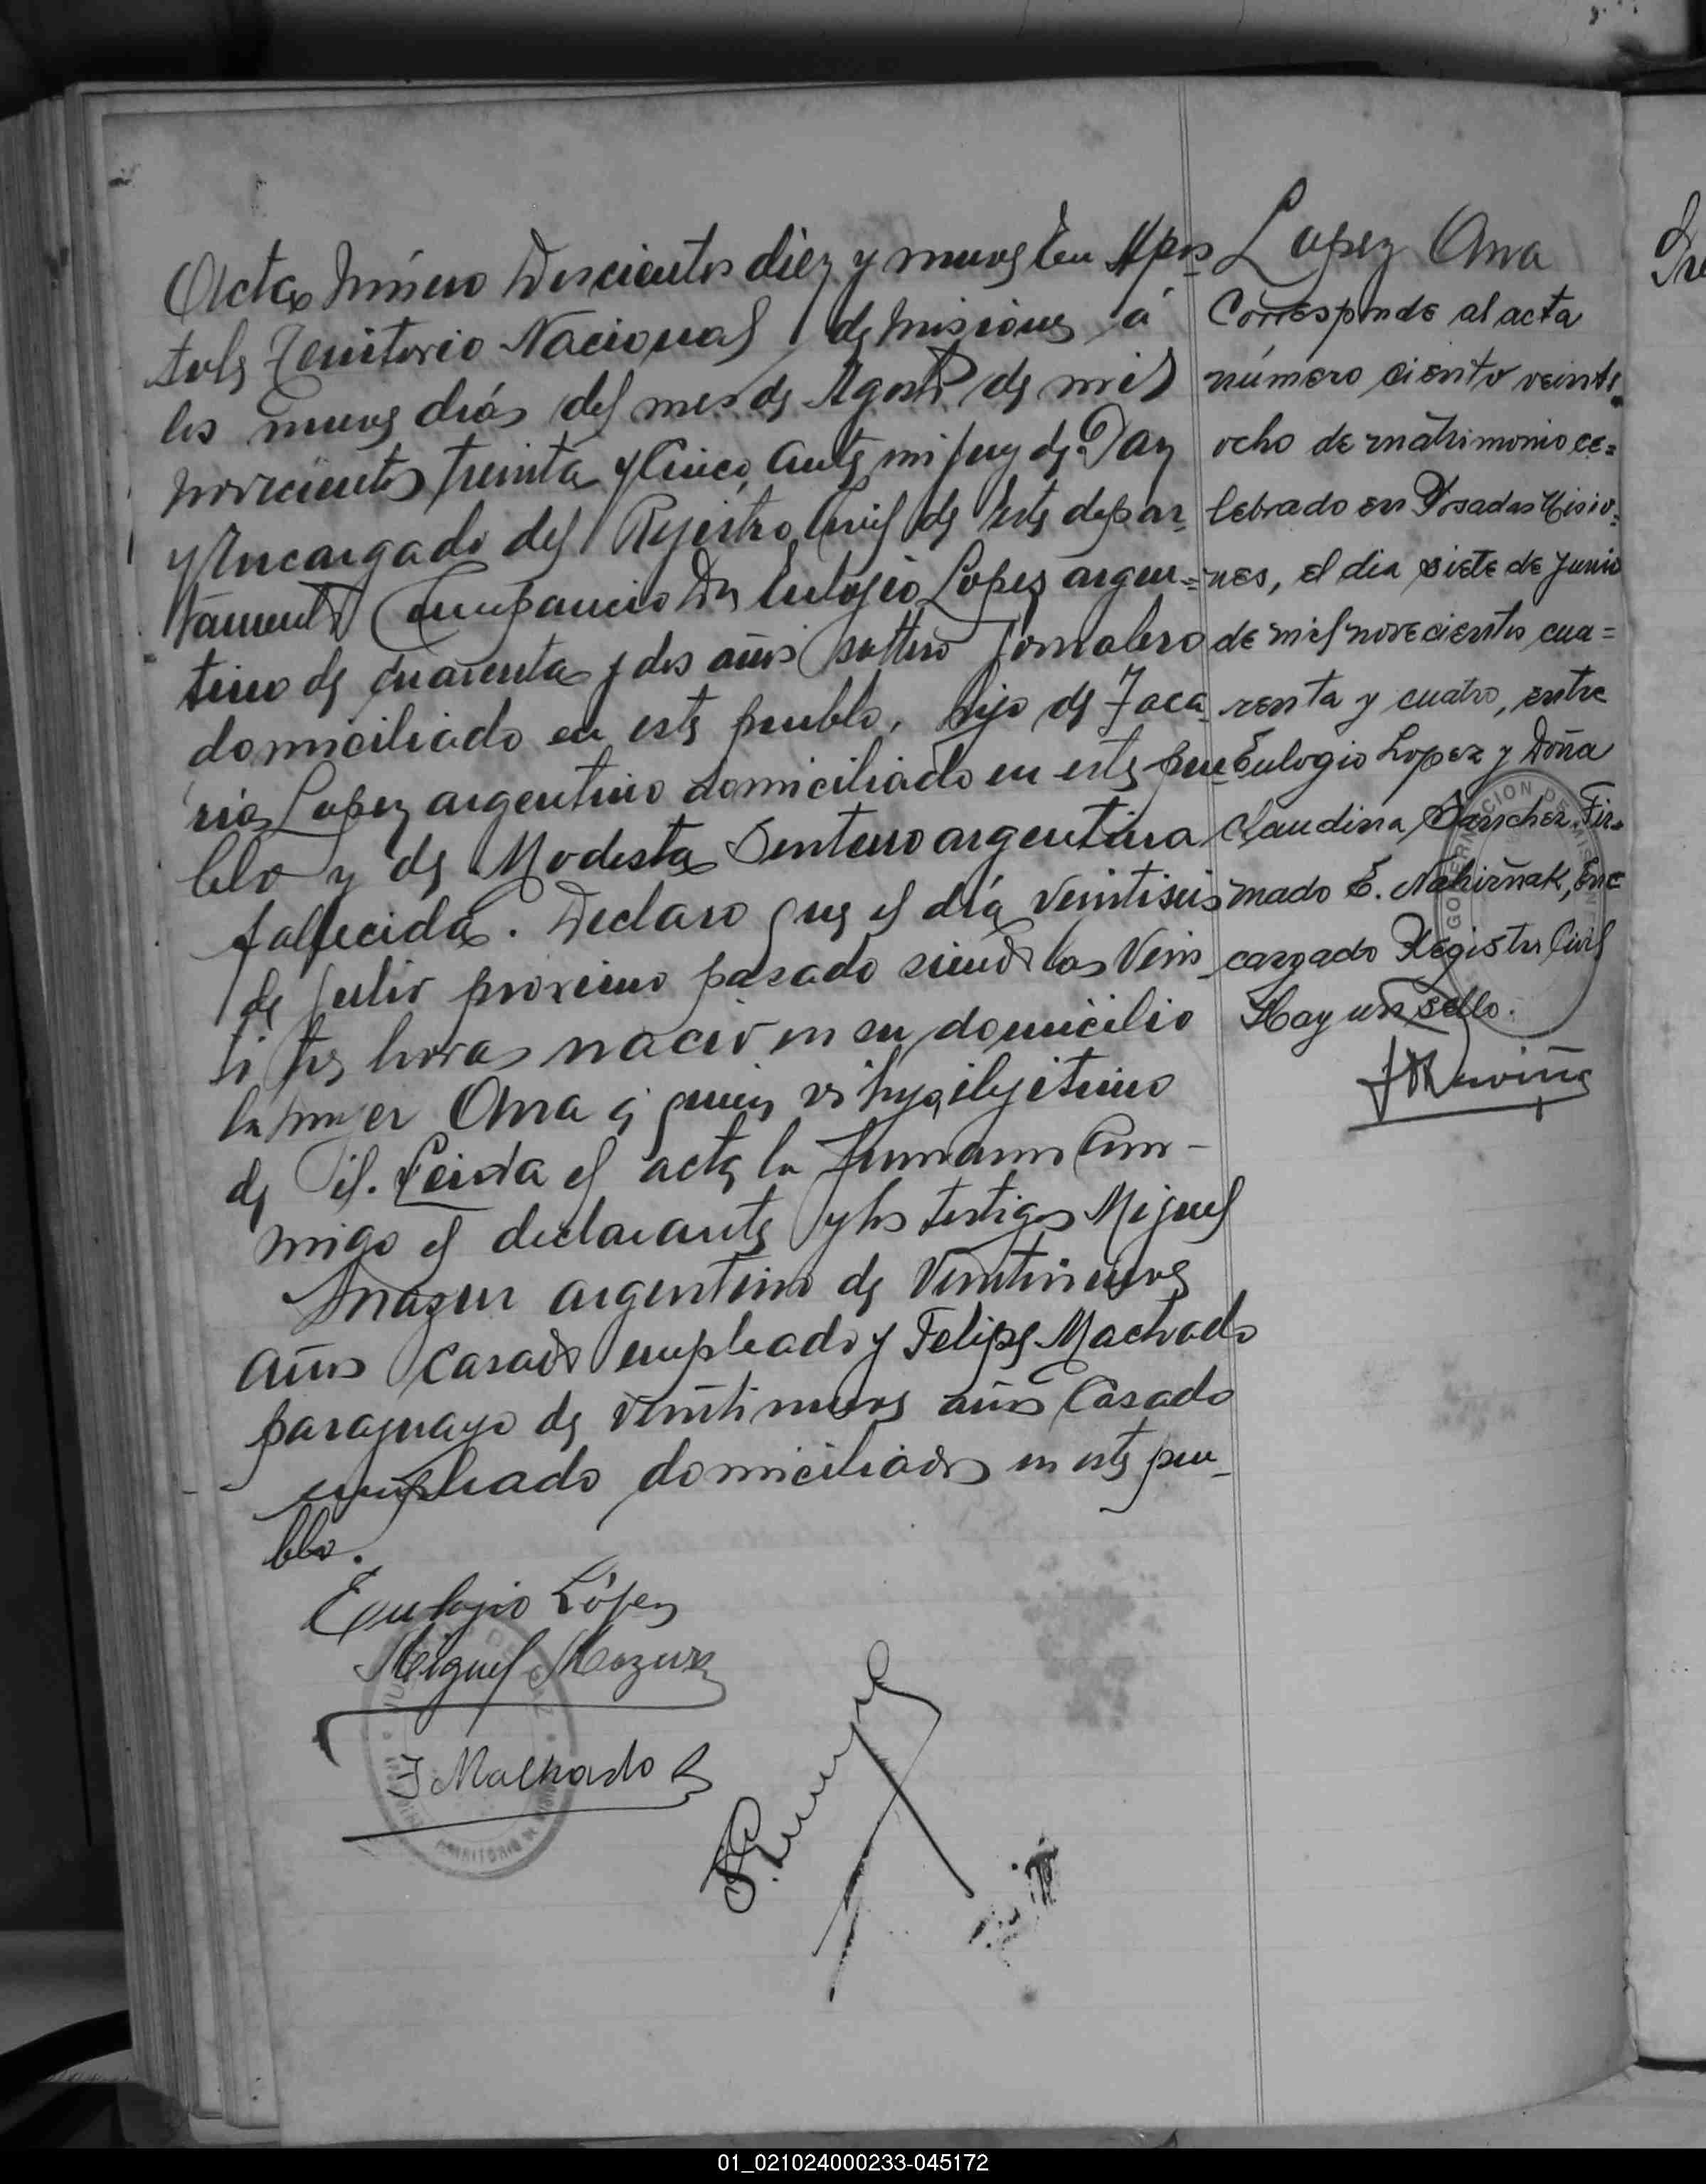 Acta Número Doscientos diez y nueve En Após
toles Territorio Nacional de Misiones á
los nueve días del mes de Agosto de mil
novecientos treinta y Cinco, ante mi Juez de Paz
y Encargado del Rejistro Civil de este depar-
tamento Compareció Dn Eulojio Lopez argen-
tino de cuarenta y dos años soltero Jornalero
domiciliado en este pueblo, hijo de Zaca
rias Lopez argentino domiciliado en este pue
blo y de Modesta Centeno argentina
fallecida. Declaro que el día veintiseis
de Julio proximo pasado siendo las Vein
ti tres horas nació en su domicilio
la mujer Ana quien es hija ilejitima
de él. Leida el acta la firmaron Con-
migo el declarante y los testigos Miguel
Mazur argentino de Veintinueve
años Casado empleado y Felipe Machado
paraguayo de veintinueve años Casado
empleado domiciliados en este pue-
blo.
Eulogio López
Miguel Mazur
F Machado
Lopez Ana
Corresponde al acta
número ciento veinti
ocho de matrimonio ce=
lebrado en Posadas Misio=
nes, el dia siete de junio
de mil novecientos cua=
renta y cuatro, entre
Eulogio Lopez y Doña
Claudina Sanchez. Fir-
mado E. Nahirñak, Enc
cargado Registro Civil
Hay un sello.
GOBERNACION DE MISIONES
TERRITORIO DE MISIONES
01_021024000233-045172